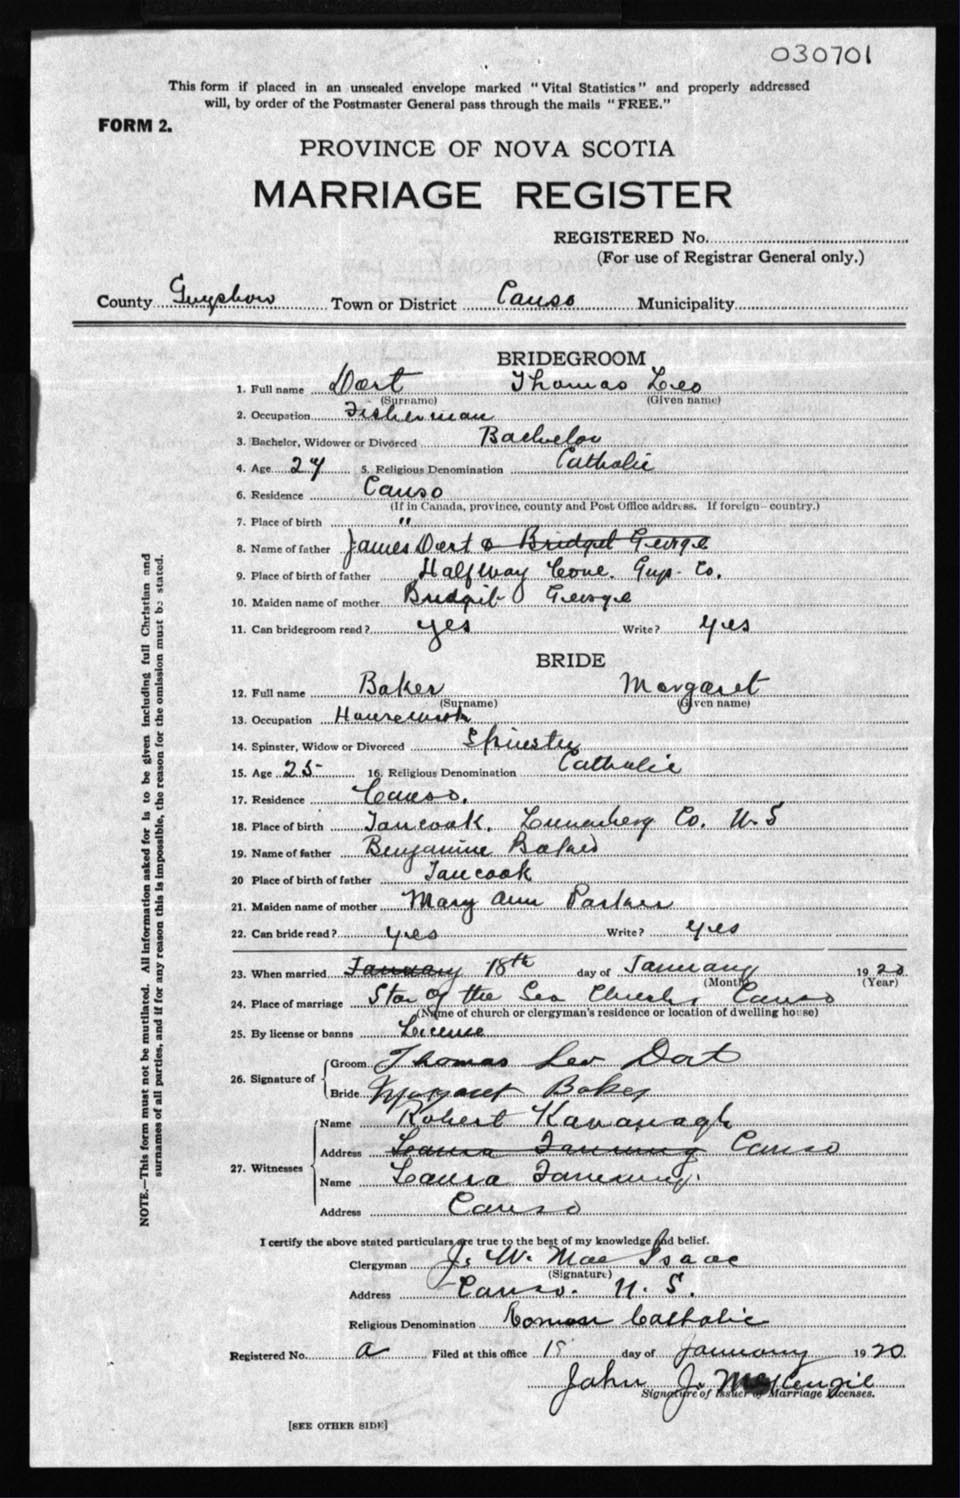 030701
This form if placed in an unsealed envelope marked "Vital Statistics" and properly addressed
will, by order of the Postmaster General pass through the mails "FREE."
FORM 2.
PROVINCE OF NOVA SCOTIA
MARRIAGE REGISTER
REGISTERED No.
(For use of Registrar General only.)
County Guysboro Town or District Canso Municipality
BRIDEGROOM
1. Full name Dort Thomas Leo
(Surname) (Given name)
2. Occupation Fisherman
3. Bachelor, Widower or Divorced Bachelor
4. Age 27 5. Religious Denomination Catholic
6. Residence Canso
(If in Canada, province, county and Post Office address. If foreign—country.)
7. Place of birth "
8. Name of father James Dort & Bridget George
9. Place of birth of father Halfway Cove. Guys. Co.
10. Maiden name of mother Bridgit George
11. Can bridegroom read? yes Write? yes
BRIDE
12. Full name Baker Margaret
(Surname) (Given name)
13. Occupation Housework
14. Spinster, Widow or Divorced Spinster
15. Age 25 16. Religious Denomination Catholic
17. Residence Canso.
18. Place of birth Tancook. Lunenberg Co. N. S
19. Name of father Benjamine
20 Place of birth of father Tancook
21. Maiden name of mother Mary Ann
22. Can bride read? yes Write? yes
23. When married January 18th day of January 1920
(Month) (Year)
24. Place of marriage Star of the Sea Church, Canso
(Name of church or clergyman's residence or location of dwelling house)
25. By license or banns License
26. Signature of
Groom Thomas Leo Dort
Bride Margaret Baker
27. Witnesses
Name Robert Kavanagh
Address Laura Canso
Name Laura
Address Canso
I certify the above stated particulars are true to the best of my knowledge and belief.
Clergyman J. W. Mac Isaac
(Signature)
Address Canso. N. S.
Religious Denomination Roman Catholic
Registered No. a Filed at this office 18 day of January 1920.
John J. McKenzie
Signature of Issuer of Marriage Licenses.
[SEE OTHER SIDE]
NOTE.—This form must not be mutilated. All information asked for is to be given including full Christian and
surnames of all parties, and if for any reason this is impossible, the reason for the omission must be stated.